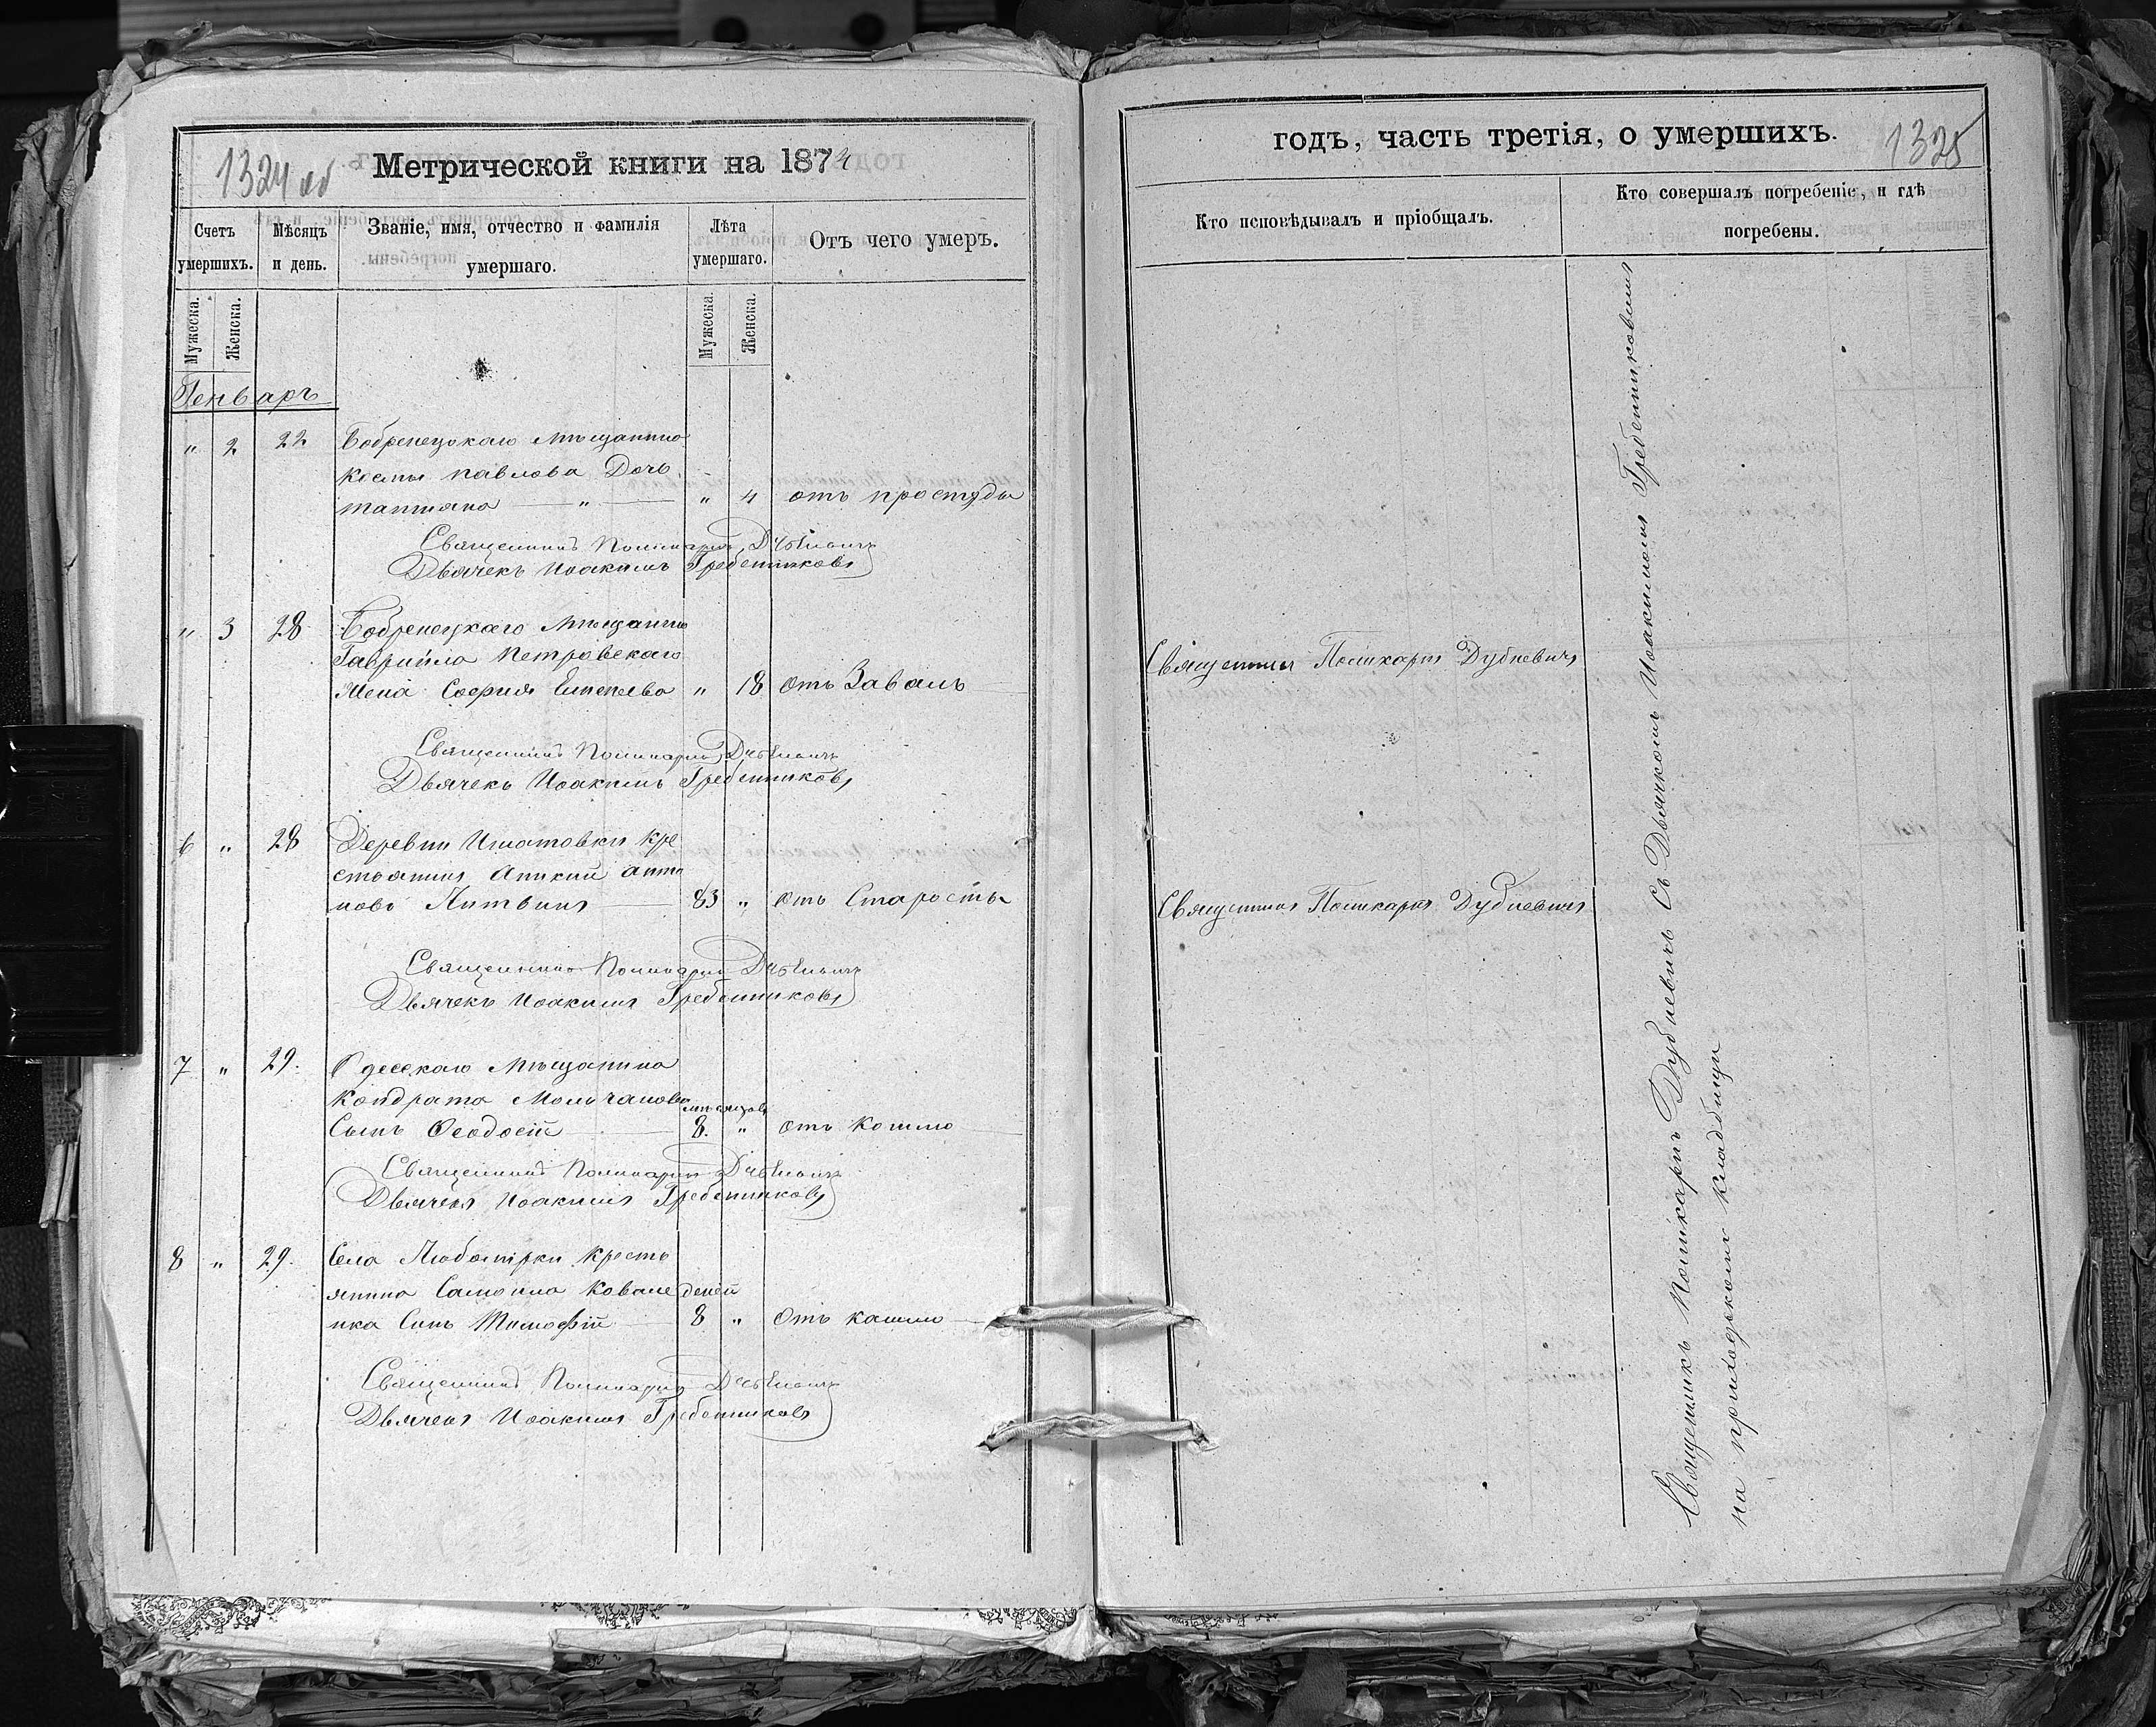 1324 об
Метрической книги на 1874
Счетъ умершихъ.
Мѣсяцъ и день.
Званіе, имя, отчество и фамилія умершаго.
Лѣта умершаго.
Отъ чего умеръ.
Мужеска.
Женска.
Мужеска.
Женска.
Генварь
" 2 22 Бобренецкаго Мѣщанина
Космы Павлова Дочь
татіяна — " — " 4 отъ простуды
Священникъ Поликарпъ Дубневичъ
Дьячекъ Иоакимъ Гребенниковъ
" 3 28 Бобренецкаго Мѣщанина
Гавриила Петровскаго
Жена София " 18 отъ Завалъ
Священникъ Поликарпъ Дубневичъ
Дьячекъ Иоакимъ Гребенниковъ
6 " 28 Деревни Игнатовки Кре
стьянинъ Анто
новъ Литвинъ 83 " отъ Старости
Священникъ Поликарпъ Дубневичъ
Дьячекъ Иоакимъ Гребенниковъ
7 " 29. Одесскаго Мѣщанина
Кондрата Молчанова мѣсяцовъ
Сынъ Ѳеодосій 8. " отъ Кошлю
Священникъ Поликарпъ Дубневичъ
Дьячекъ Иоакимъ Гребенниковъ
8 " 29. Села Любомірки Кресть
янина Самоила Ковале дений
нка Синъ Тимофій 8 " Отъ кашлю
Священникъ Поликарпъ Дубневичъ
Дьячекъ Иоакимъ Гребенниковъ
годъ, часть третія, о умершихъ.
1325
Кто исповѣдывалъ и пріобщалъ.
Кто совершалъ погребеніе, и гдѣ
погребены.
Священникъ Поликарпъ Дубневичъ
Священникъ Поликарпъ Дубневичъ
Священникъ Поликарпъ Дубневичъ Съ Дьячкомъ Иоакимомъ Гребенниковимъ
на приходскомъ кладбищи